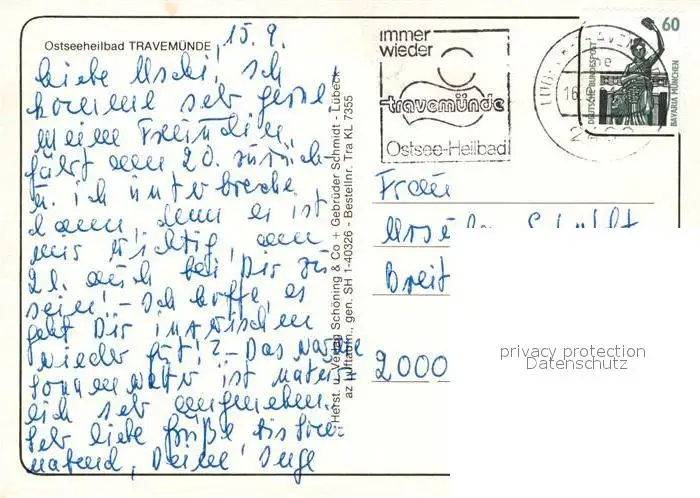 Ostseeheilbad TRAVEMÜNDE
15.9.
Liebe Uschi, ich
komme sehr gerne.
meine Freundin
fährt am 20. zurück
u. ich unterbreche
dann, denn es ist
mir wichtig, am
21. auch bei Dir zu
sein! - Ich hoffe, es
geht Dir inzwischen
wieder gut!? - Das warme
Sonnenwetter ist natür-
lich sehr angenehm.
Sehr liebe Grüße bis Sonn-
abend, Deine Inge
Herst. u. Verlag Schöning & Co + Gebrüder Schmidt - Lübeck
Luftaufn., gen. SH 1-40326 - Bestellnr. Tra KL 7355
immer
wieder
travemünde
Ostsee-Heilbad
60
DEUTSCHE BUNDESPOST
BAVARIA MÜNCHEN
Frau
Breit
2000
privacy protection
Datenschutz